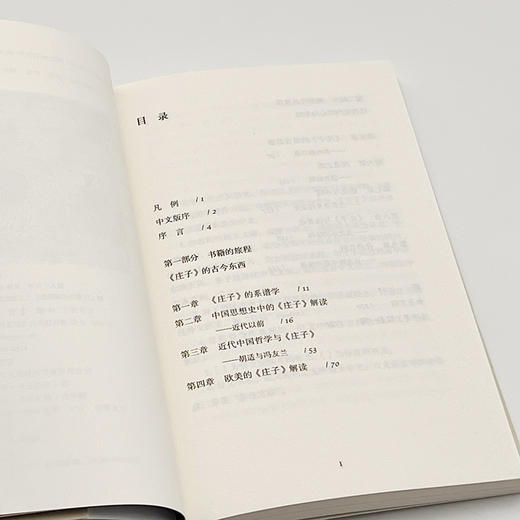 目 录
凡 例 /1
中文版序 /2
序 言 /4
第一部分 书籍的旅程
《庄子》的古今东西
第一章 《庄子》的系谱学 /11
第二章 中国思想史中的《庄子》解读
——近代以前 /16
第三章 近代中国哲学与《庄子》
——胡适与冯友兰 /53
第四章 欧美的《庄子》解读 /70
I